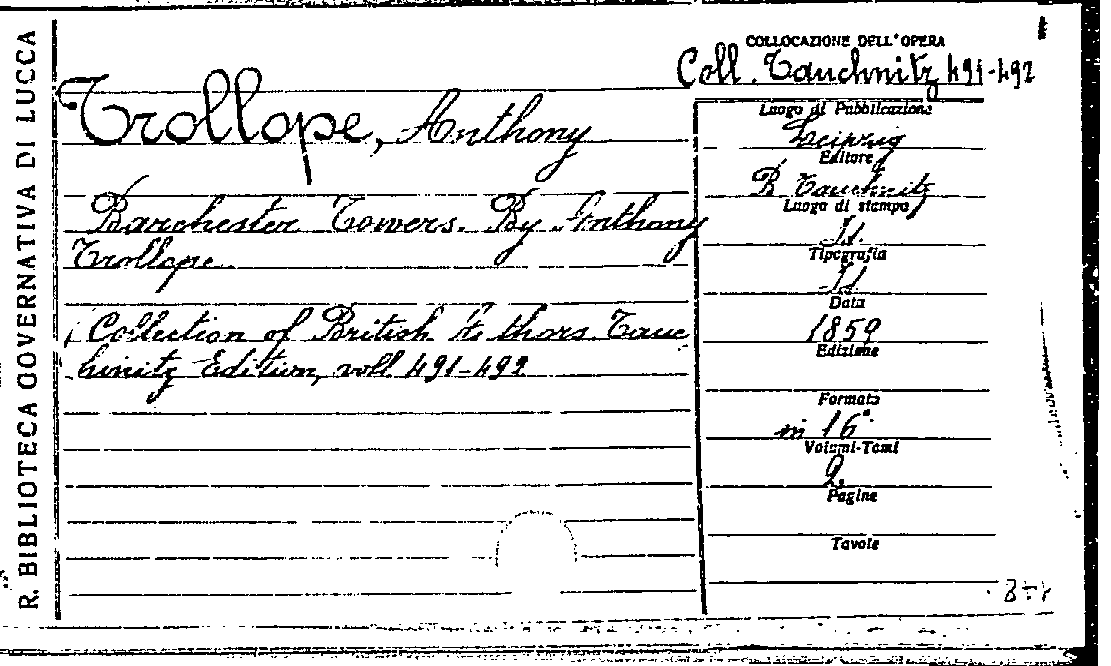 R. BIBLIOTECA GOVERNATIVA DI LUCCA
COLLOCAZIONE DELL'OPERA
Coll. Tauchnitz 491-492
Trollope, Anthony
Barchester Towers. By Anthony
Trollope.
(Collection of British Authors. Tauc
hinitz Edition, voll 491-492
Luogo di Pubblicazione
Leipzig
Editore
B. Tauchnitz
Luogo di stampa
Id.
Tipografia
Id.
Data
1859
Edizione
Formato
in 16°
Volumi-Tomi
2.
Pagine
Tavole